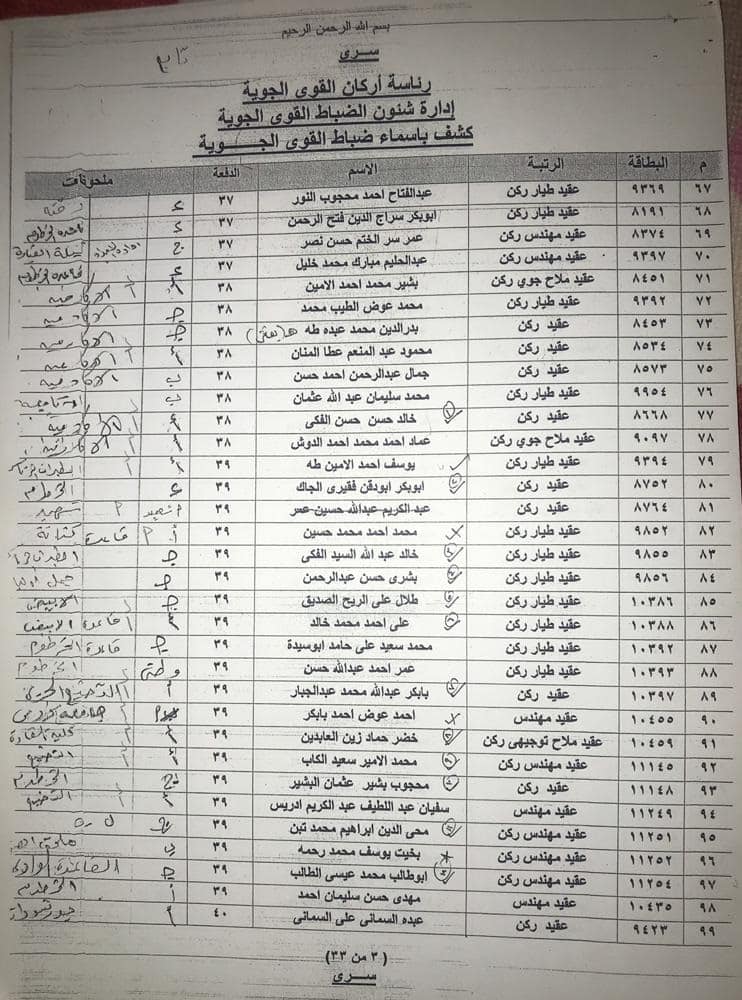 بسم الله الرحمن الرحيم
سرى
رئاسة أركان القوى الجوية
إدارة شئون الضباط القوى الجوية
كشف باسماء ضباط القوى الجـــوية
م البطاقة الرتبة الاسم الدفعة ملحوظات
٦٧ ٩٣٦٩ عقيد طيار ركن عبدالفتاح احمد محجوب النور ٣٧ ع
٦٨ ٨١٩١ عقيد طيار ركن ابوبكر سراج الدين فتح الرحمن ٣٧ ع قاعدة الخرطوم
٦٩ ٨٣٧٤ عقيد مهندس ركن عمر سر الختم حسن نصر ٣٧ ج
٧٠ ٩٣٩٧ عقيد مهندس ركن عبدالحليم مبارك محمد خليل ٣٧ ع قاعدة الخرطوم
٧١ ٨٤٥١ عقيد ملاح جوي ركن بشير محمد احمد الامين ٣٨ أ
٧٢ ٩٣٩٢ عقيد طيار ركن محمد عوض الطيب محمد ٣٨ ج
٧٣ ٨٤٥٣ عقيد ركن بدرالدين محمد عبده طه ٣٨ ج
٧٤ ٨٥٣٤ عقيد ركن محمود عبد المنعم عطا المنان ٣٨ أ
٧٥ ٨٥٧٣ عقيد ركن جمال عبدالرحمن احمد حسن ٣٨ ب
٧٦ ٩٩٥٤ عقيد طيار ركن محمد سليمان عبد الله عثمان ٣٨ ب
٧٧ ٨٦٦٨ عقيد ركن خالد حسن حسن الفكى ٣٨ أ
٧٨ ٩٠٩٧ عقيد ملاح جوي ركن عماد احمد محمد احمد الدوش ٣٨ أ
٧٩ ٩٣٩٤ عقيد طيار ركن يوسف احمد الامين طه ٣٩ أ
٨٠ ٨٧٥٢ عقيد طيار ركن ابوبكر ابودقن فقيرى الجاك ٣٩ ع الخرطوم
٨١ ٨٧٦٤ عقيد طيار ركن عبد الكريم عبدالله حسين عمر ٣٩ شهيد
٨٢ ٩٨٥٢ عقيد طيار ركن محمد احمد محمد حسين ٣٩ أ قاعدة كنانة
٨٣ ٩٨٥٥ عقيد طيار ركن خالد عبد الله السيد الفكى ٣٩ ج
٨٤ ٩٨٥٦ عقيد طيار ركن بشرى حسن عبدالرحمن ٣٩ ج
٨٥ ١٠٣٨٦ عقيد طيار ركن طلال على الريح الصديق ٣٩ ج الابيض
٨٦ ١٠٣٨٨ عقيد طيار ركن على احمد محمد خالد ٣٩ أ قاعدة الابيض
٨٧ ١٠٣٩٢ عقيد طيار ركن محمد سعيد على حامد ابوسيدة ٣٩ ج قاعدة الخرطوم
٨٨ ١٠٣٩٣ عقيد طيار ركن عمر احمد عبدالله حسن ٣٩ وطنى الخرطوم
٨٩ ١٠٣٩٧ عقيد ركن بابكر عبدالله محمد عبدالجبار ٣٩ أ
٩٠ ١٠٤٥٥ عقيد مهندس احمد عوض احمد بابكر ٣٩
٩١ ١٠٤٥٩ عقيد ملاح توجيهى ركن خضر حماد زين العابدين ٣٩ أ كلية القادة
٩٢ ١١١٤٥ عقيد مهندس ركن محمد الامير سعيد الكاب ٣٩ أ التصنيع
٩٣ ١١١٤٨ عقيد ركن محجوب بشير عثمان البشير ٣٩ ج الخرطوم
٩٤ ١١٢٤٩ عقيد مهندس سفيان عبد اللطيف عبد الكريم ادريس ٣٩ أ التصنيع
٩٥ ١١٢٥١ عقيد مهندس ركن محى الدين ابراهيم محمد تبن ٣٩ ج
٩٦ ١١٢٥٢ عقيد مهندس ركن بخيت يوسف محمد رحمه ٣٩
٩٧ ١١٢٥٤ عقيد مهندس ركن ابوطالب محمد عيسى الطالب ٣٩ ج
٩٨ ١٠٤٣٥ عقيد مهندس مهدى حسن سليمان احمد ٣٩ أ الخرطوم
٩٩ ٩٤٢٣ عقيد ركن عبده السمانى على السمانى ٤٠ أ
(٣ من ٣٣)
سرى